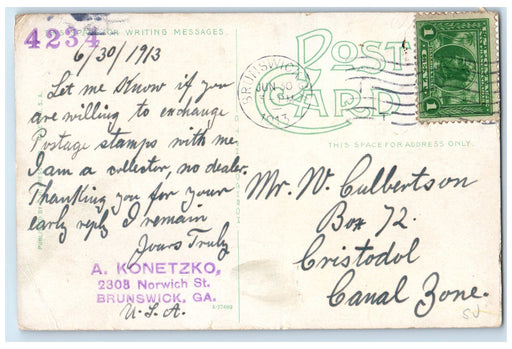 4234
FOR WRITING MESSAGES.
6/30/1913
Let me Know if you
are willing to exchange
Postage stamps with me,
I am a collector, no dealer.
Thanking you for your
early reply I remain
Yours Truly
A. KONETZKO,
2308 Norwich St.
BRUNSWICK, GA.
U.S.A.
POST
CARD
THIS SPACE FOR ADDRESS ONLY.
BRUNSWICK
JUN 30
1913
1 1
Mr. W. Culbertson
Box 72.
Cristodol
Canal Zone.